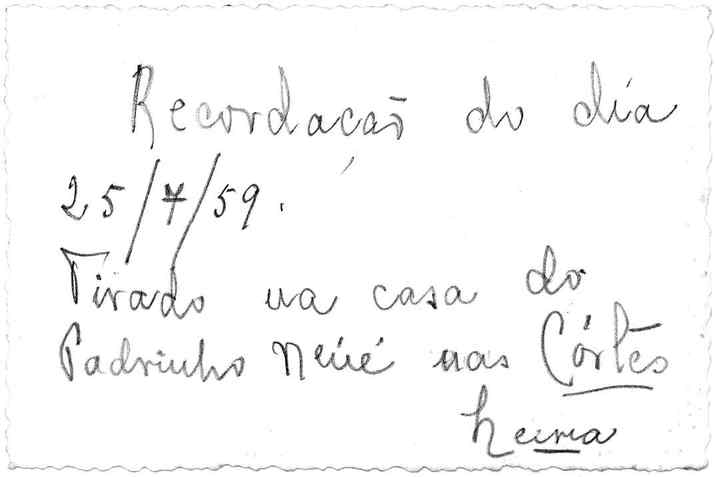 Recordação do dia
25/7/59.
Tirado na casa do
Padrinho Nené nas Côrtes
Leiria